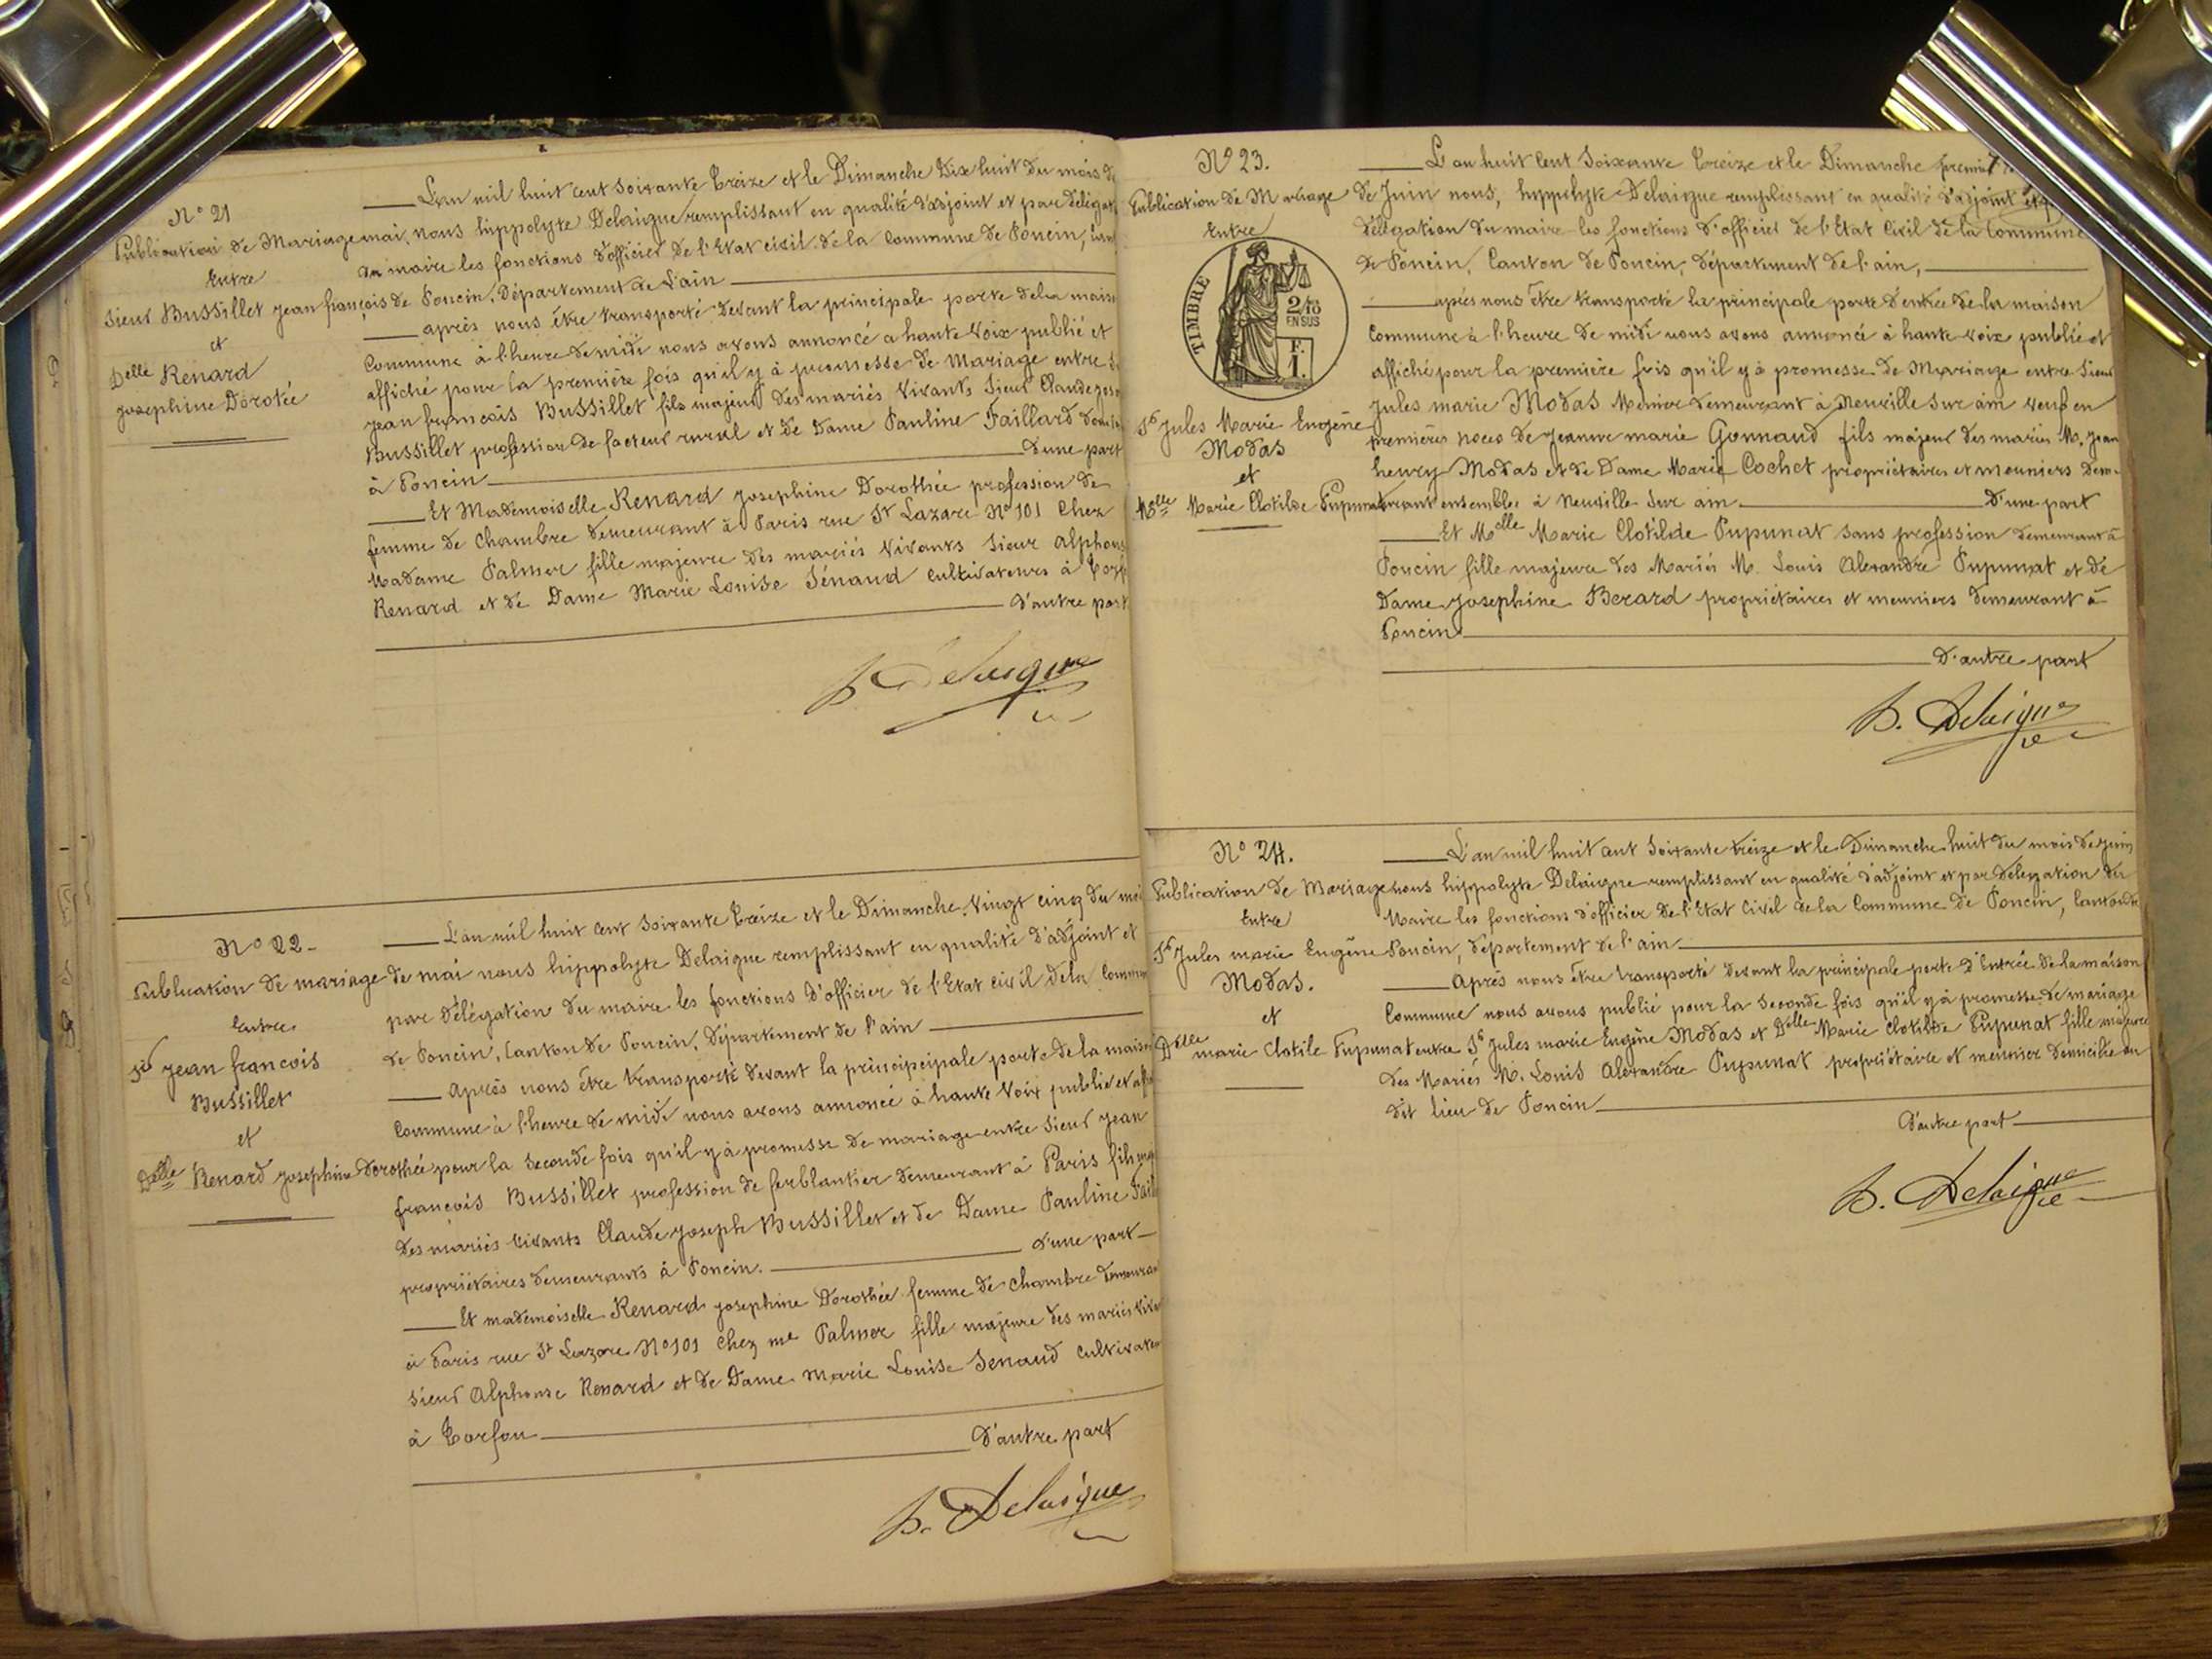 N° 21
Publication de Mariage
Entre
Sieur Bussillet jean françois
et
Delle Renard
josephine Dorotée
L'an mil huit cent soixante treize et le Dimanche Dix huit du mois de
mai, nous hippolyte Delaigue remplissant en qualité d'adjoint et par délégat
du maire les fonctions d'officier de l'Etat civil de la Commune de Poncin,
de Poncin, Département de l'ain
après nous être transporté devant la principale porte de la mais
Commune à l'heure de midi nous avons annoncé a haute voix publié et
affiché pour la première fois qu'il y à promesse de Mariage entre
jean françois Bussillet fils majeur des mariés vivants Sieur Claude
Bussillet profession de facteur rural et de Dame Pauline Faillard
à Poncin d'une part
Et Mademoiselle Renard Josephine Dorothée profession de
femme de chambre demeurant à Paris rue St Lazare N° 101 Chez
Madame Palmer fille majeure des mariés vivants Sieur alphons
Renard et de Dame Marie Louise Sénaud cultivateurs à
d'autre part
h. Delaigue
N° 22
Publication de mariage
Entre
Sr jean françois
Bussillet
et
Delle Renard josephine Dorothée
L'an mil huit cent soixante treize et le Dimanche vingt cinq du moi
de mai nous hippolyte Delaigue remplissant en qualité d'adjoint et
par délégation du maire les fonctions d'officier de l'Etat civil de la Commun
de Poncin, Canton de Poncin, Département de l'ain
Après nous être transporté devant la principcipale porte de la maiso
Commune à l'heure de midi nous avons annoncé à haute voix publié et aff
pour la seconde fois qu'il y à promesse de mariage entre Sieur jean
françois Bussillet profession de ferblantier demeurant à Paris fils maj
des mariés vivants Claude joseph Bussillet et de Dame Pauline Fail
propriétaires demeurants à Poncin. d'une part
Et mademoiselle Renard josephine Dorothée femme de chambre demeuran
à Paris rue St Lazare N° 101 chez me Palmer fille majeure des mariés viva
Sieur Alphonse Renard et de Dame Marie Louise Senaud cultivateu
à Torfou d'autre part
h. Delaigue
N° 23.
Publication de Mariage
Entre
TIMBRE
2/10
EN SUS
F.
1.
Sr Jules Marie Eugène
Modas
et
Melle Marie Clotilde Pupunat
L'an huit Cent Soixante treize et le Dimanche premier
de Juin nous, hyppolyte Delaigue remplissant en qualité d'adjoint et p
délégation du maire les fonctions d'officier de l'Etat Civil de la Commune
de Poncin, Canton de Poncin, département de l'ain,
après nous être transporté la principale porte d'entrée de la maison
Commune à l'heure de midi nous avons annoncé à haute voix publié et
affiché pour la première fois qu'il y à promesse de Mariage entre Sieur
Jules marie Modas Menier demeurant à Neuville sur ain veuf en
premières noces de jeanne marie Gonnaud fils majeur des mariés M. jean
henry Modas et de Dame Marie Cochet propriétaires et meuniers dem-
eurant ensembles à Neuville sur ain d'une part
Et Melle Marie Clotilde Pupunat sans profession demeurant à
Poncin fille majeure des Mariés M. Louis Alexandre Pupunat et de
Dame Josephine Berard propriétaires et meuniers demeurant à
Poncin
d'autre part
h. Delaigue
N° 24.
Publication de Mariage
Entre
Sr Jules marie Eugène
Modas.
et
Delle marie Clotile Pupunat
L'an mil huit cent soixante treize et le Dimanche huit du mois de juin
nous hippolyte Delaigue remplissant en qualité d'adjoint et par délégation du
Maire les fonctions d'officier de l'Etat Civil de la Commune de Poncin, Canton de
Poncin, département de l'ain
Après nous être transporté devant la principale porte d'Entrée de la maison
Commune nous avons publié pour la seconde fois qu'il y à promesse de mariage
entre Sr Jules marie Eugène Modas et Delle Marie Clotilde Pupunat fille majeure
des Mariés M. Louis Alexandre Pupunat propriétaire et meunier domicilié au
dit lieu de Poncin
d'autre part
h. Delaigue